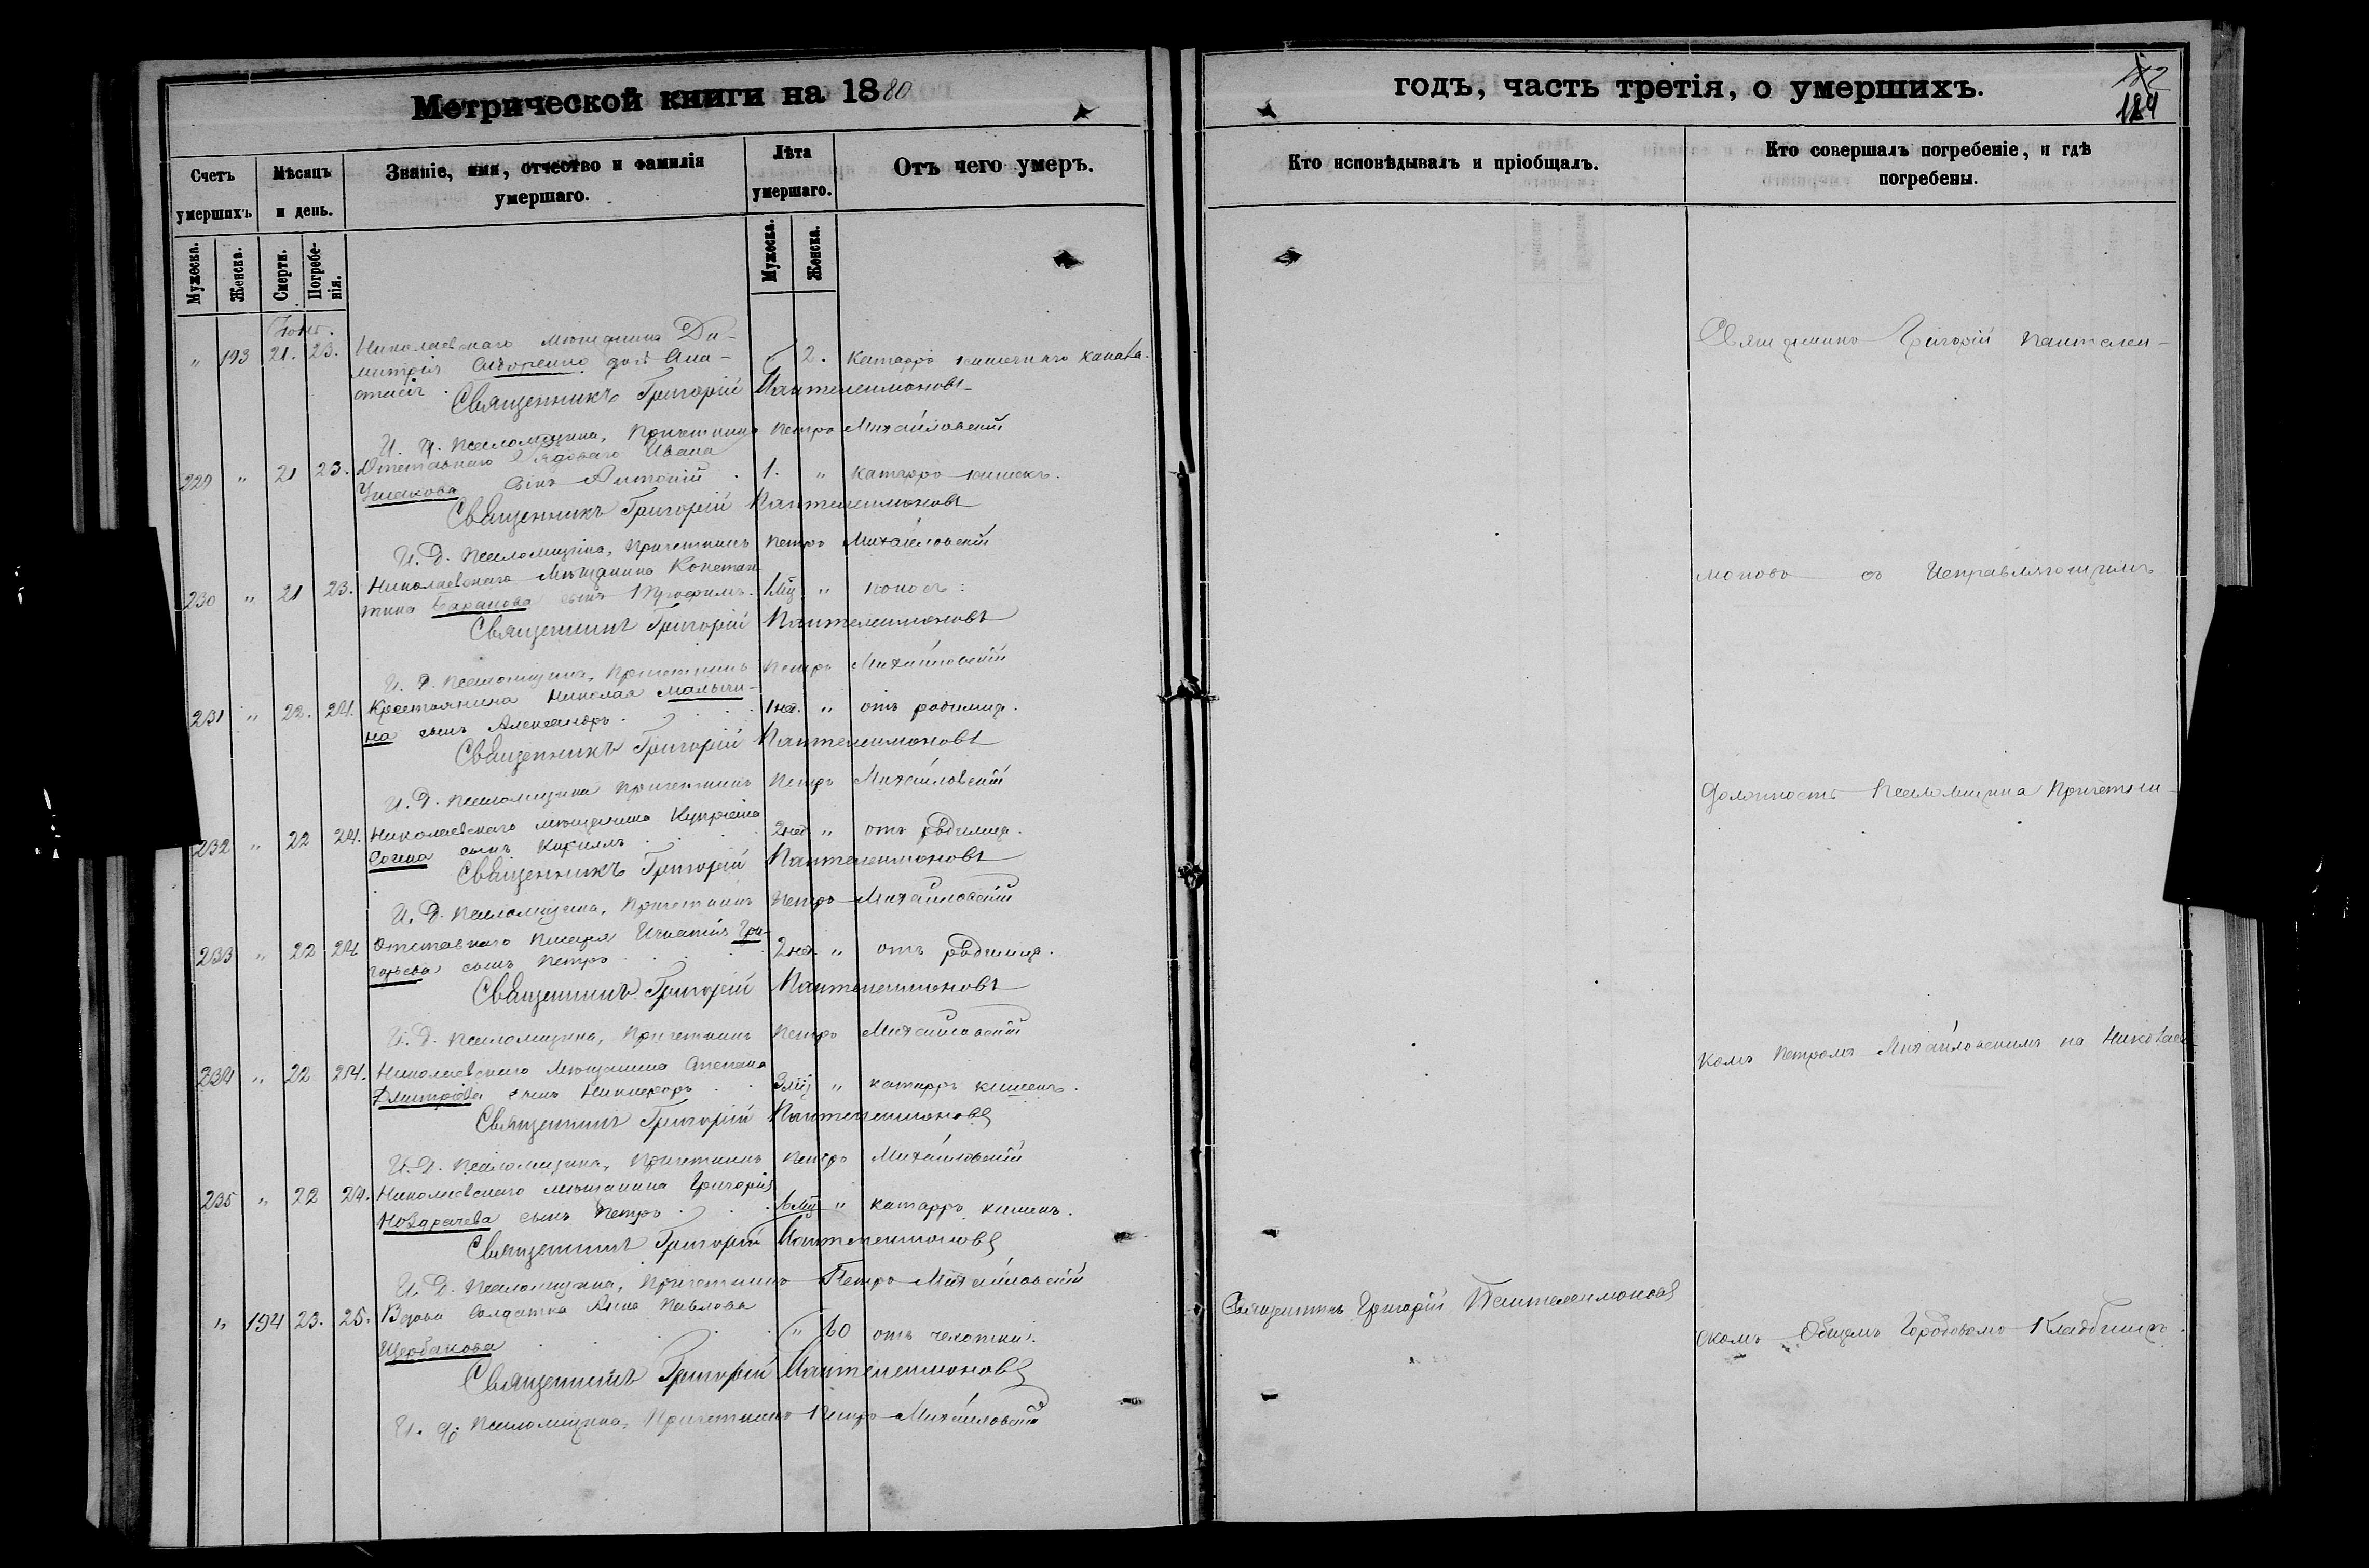 Метрической книги на 1880
годъ, часть третія, о умершихъ.
184
Счетъ умершихъ
Мѣсяцъ и день.
Званіе, имя, отчество и фамилія умершаго.
Лѣта умершаго.
Отъ чего умеръ.
Кто исповѣдывалъ и пріобщалъ.
Кто совершалъ погребеніе, и гдѣ погребены.
Мужеска. Женска. Смерти. Погребенія. Мужеска. Женска.
" 193 21. 23. Николаевскаго мѣщанина Ди-
митрія дочь Ана- 2. катарръ кишечнаго канала.
стасія.
Священникъ Григорій Пантелеимоновъ
И. д. псаломщика, Причетникъ Петръ Михайловскій
229 " 21 23. Отставнаго Рядоваго Ивана
Ушакова сынъ Антоній. 1. " катарръ кишекъ.
Священникъ Григорій Пантелеимоновъ
И. д. псаломщика, Причетникъ Петръ Михайловскій
230 " 21 23. Николаевскаго Мѣщанина Констан
тина Баранова сынъ Трофимъ. 1 мц " поносъ.
Священникъ Григорій Пантелеимоновъ
И. д. псаломщика, Причетникъ Петръ Михайловскій
231 " 22. 24. Крестьянина Николая Малыги-
на сынъ Александръ. 1 нед. " отъ родимца.
Священникъ Григорій Пантелеимоновъ
И. д. псаломщика Причетникъ Петръ Михайловскій
232 " 22 24. Николаевскаго мѣщанина
сынъ Кириллъ. 2 нед " отъ родимца.
Священникъ Григорій Пантелеимоновъ
И. д. псаломщика, Причетникъ Петръ Михайловскій
233 " 22 24 Отставнаго Писаря Игнатія Гри-
горьева сынъ Петръ 2 нед. " отъ родимца.
Священникъ Григорій Пантелеимоновъ
И. д. псаломщика, Причетникъ Петръ Михайловскій
234 " 22 24. Николаевскаго Мѣщанина Степана
Дмитріева сынъ Никифоръ. 3 мц " катарръ кишекъ.
Священникъ Григорій Пантелеимоновъ
И. д. псаломщика, Причетникъ Петръ Михайловскій
235 " 22 24. Николаевскаго мѣщанина Григорія
Ноздрачева сынъ Петръ. 6 мц " катарръ кишекъ.
Священникъ Григорій Пантелеимоновъ
И. д. псаломщика, Причетникъ Петръ Михайловскій
" 194 23. 25. Вдова Солдатка Анна Павлова
Щербакова " 60 отъ чахотки.
Священникъ Григорій Пантелеимоновъ
И. д. псаломщика, Причетникъ Петръ Михайловскій
Священникъ Григорій Пантелеимоновъ
Священникъ Григорій Пантелеи-
моновъ съ Исправляющимъ
Должность Псаломщика Причетни-
комъ Петромъ Михайловскимъ на Николаев
скомъ Общемъ Городовомъ Кладбищѣ.